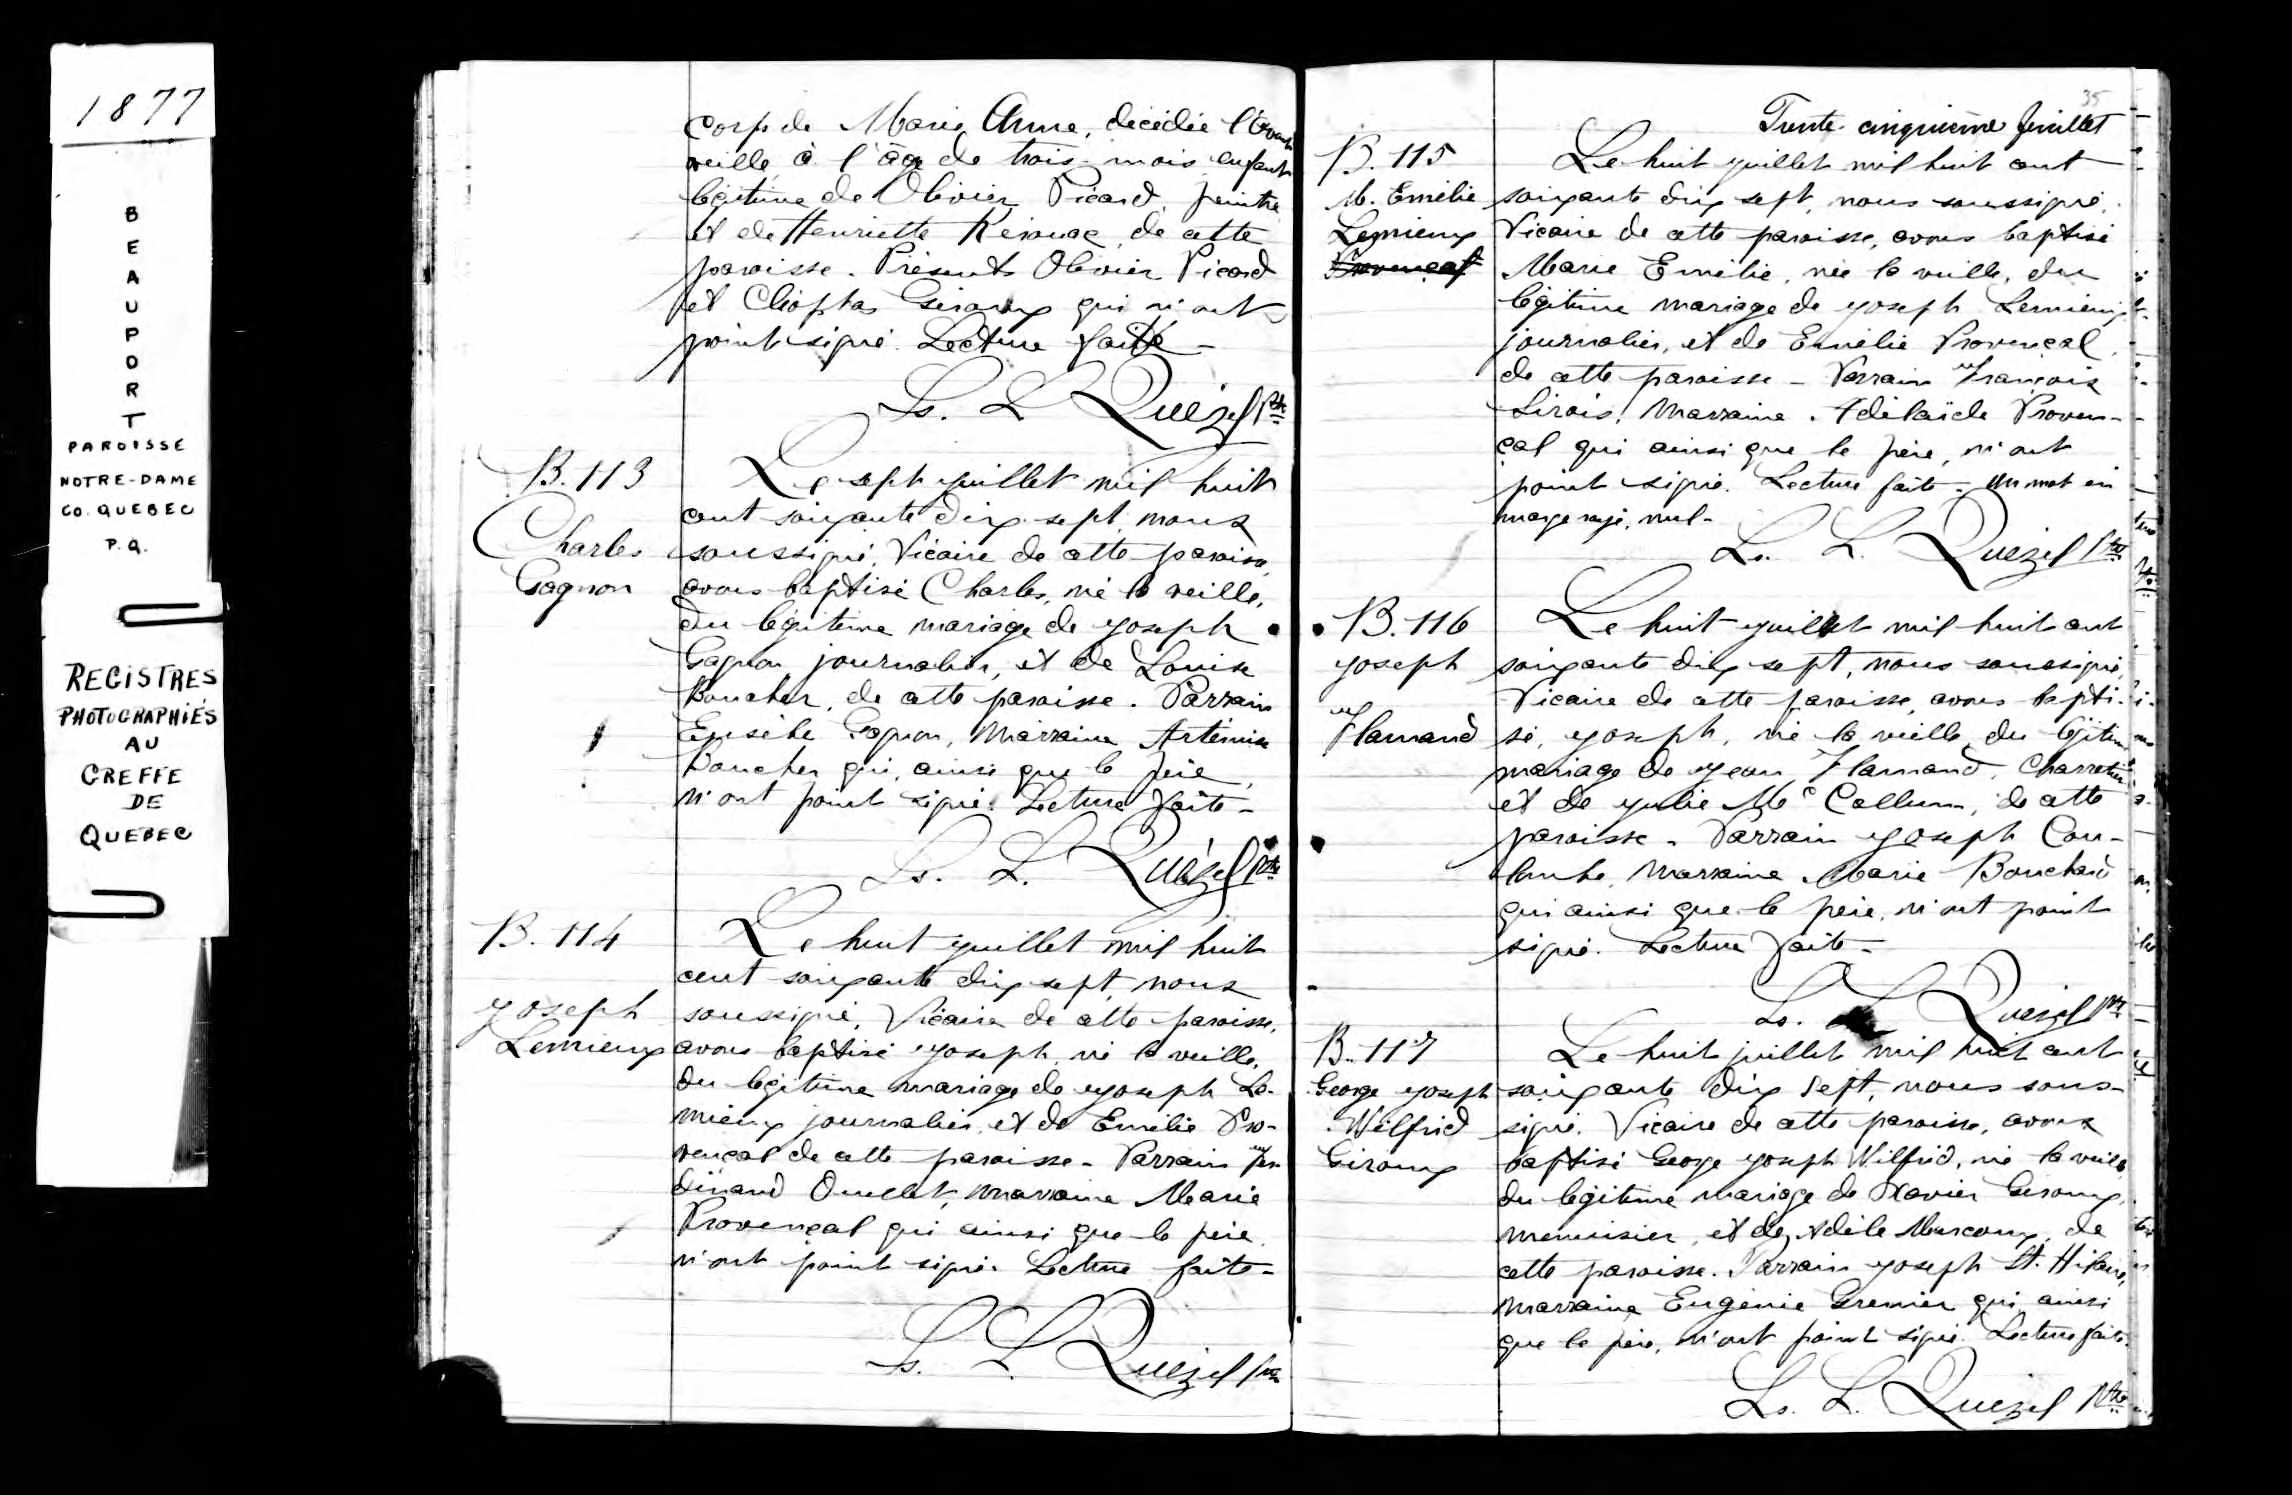 1877
BEAUPORT
PAROISSE
NOTRE-DAME
CO. QUEBEC
P.Q.
REGISTRES
PHOTOGRAPHIÉS
AU
GREFFE
DE
QUEBEC
corps de Marie Anne, décédée l'avant
veille, à l'âge de trois mois, enfant
légitime de Olivier Picard, peintre
et de Henriette Kérouac, de cette
paroisse. Présents Olivier Picard
et Cléophas Giroux qui n'ont
point signé. Lecture faite -
Ls. L. Quézel Ptre
B. 113
Charles
Gagnon
Le sept juillet mil huit
cent soixante dix sept, nous
soussigné, Vicaire de cette paroisse,
avons baptisé Charles, né la veille,
du légitime mariage de Joseph
Gagnon journalier, et de Louise
Boucher, de cette paroisse. Parrain
Eusèbe Gagnon, Marraine Artémise
Boucher qui, ainsi que le père,
n'ont point signé. Lecture faite -
Ls. L. Quézel Ptre
B. 114
Joseph
Lemieux
Le huit juillet mil huit
cent soixante dix sept, nous
soussigné, Vicaire de cette paroisse,
avons baptisé Joseph, né la veille,
du légitime mariage de Joseph Le-
mieux journalier, et de Emélie Pro-
vençal de cette paroisse - Parrain Fer-
dinand Ouellet, marraine Marie
Provençal qui ainsi que le père,
n'ont point signé. Lecture faite -
Ls. L. Quézel Ptre
35
Trente-cinquième feuillet
B. 115
M. Emélie
Lemieux
Provençal
Le huit juillet mil huit cent
soixante dix sept, nous soussigné,
Vicaire de cette paroisse, avons baptisé
Marie Emélie, née la veille, du
légitime mariage de Joseph Lemieux
journalier, et de Emélie Provençal,
de cette paroisse - Parrain François
Lirois, Marraine Adélaïde Proven-
çal qui ainsi que le père, n'ont
point signé. Lecture faite - Un mot en
marge rayé, nul -
Ls. L. Quézel Ptre
B. 116
Joseph
Flamand
Le huit juillet mil huit cent
soixante dix sept, nous soussigné,
Vicaire de cette paroisse, avons bapti-
sé, Joseph, né la veille, du légitime
mariage de Jean Flamand, Charretier
et de Julie Mc Callum, de cette
paroisse - Parrain Joseph Cou-
lombe, Marraine Marie Bouchard
qui ainsi que le père, n'ont point
signé. Lecture faite -
Ls. L. Quézel Ptre
B. 117
George Joseph
Wilfrid
Giroux
Le huit juillet mil huit cent
soixante dix sept, nous sous-
signé, Vicaire de cette paroisse, avons
baptisé George Joseph Wilfrid, né la veille
du légitime mariage de Xavier Giroux,
menuisier, et de Adèle Marcoux, de
cette paroisse. Parrain Joseph St. Hilaire,
marraine Eugénie Grenier qui ainsi
que le père, n'ont point signé. Lecture faite.
Ls. L. Quézel Ptre